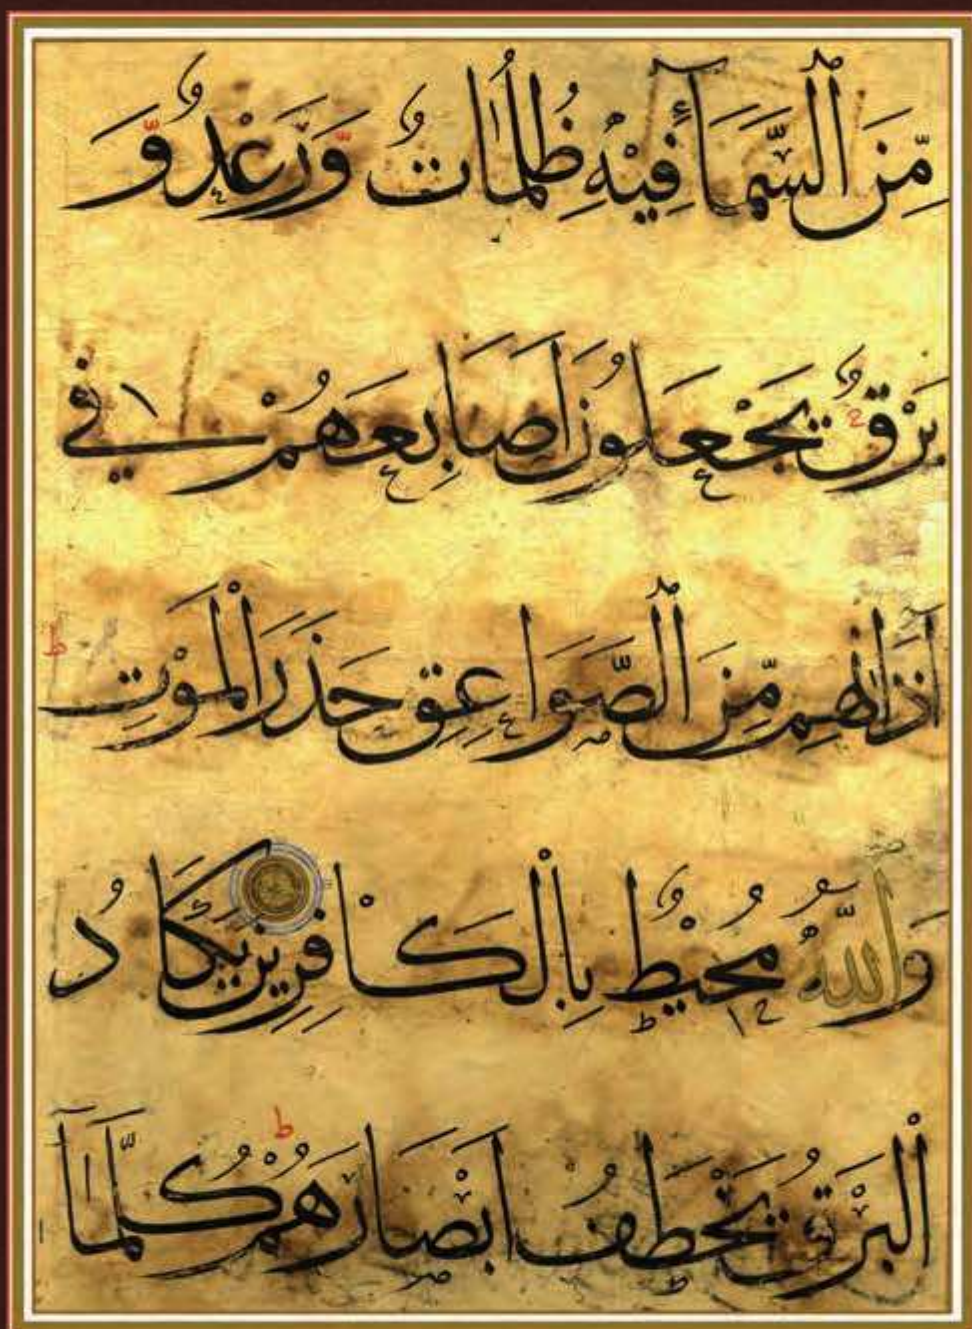 مِّنَ ٱلسَّمَآءِ فِيْهِ ظُلُمَاتٌ وَّرَعْدٌ وَّ
بَرْقٌ يَجْعَلُونَ اَصَابِعَهُمْ فِي
آذَانِهِم مِّنَ ٱلصَّوَاعِقِ حَذَرَ الْمَوْتِ ط
وَٱللَّهُ مُحِيْطٌ بِالْكَافِرِينَ يَكَادُ
الْبَرْقُ يَخْطَفُ اَبْصَارَهُمْ ط كُلَّمَآ